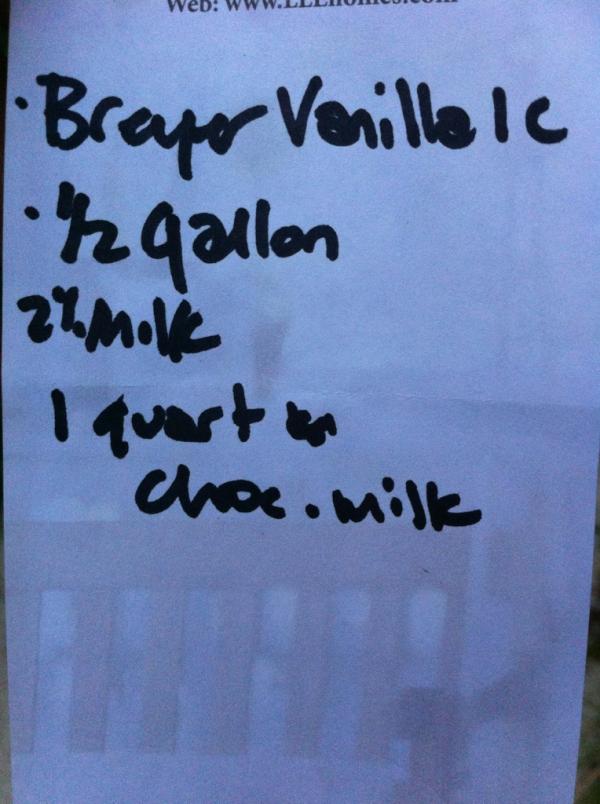 Web: www.LLLhomes.com
· Breyer Vanilla I C
· 1/2 gallon
2% Milk
1 quart
choc. milk